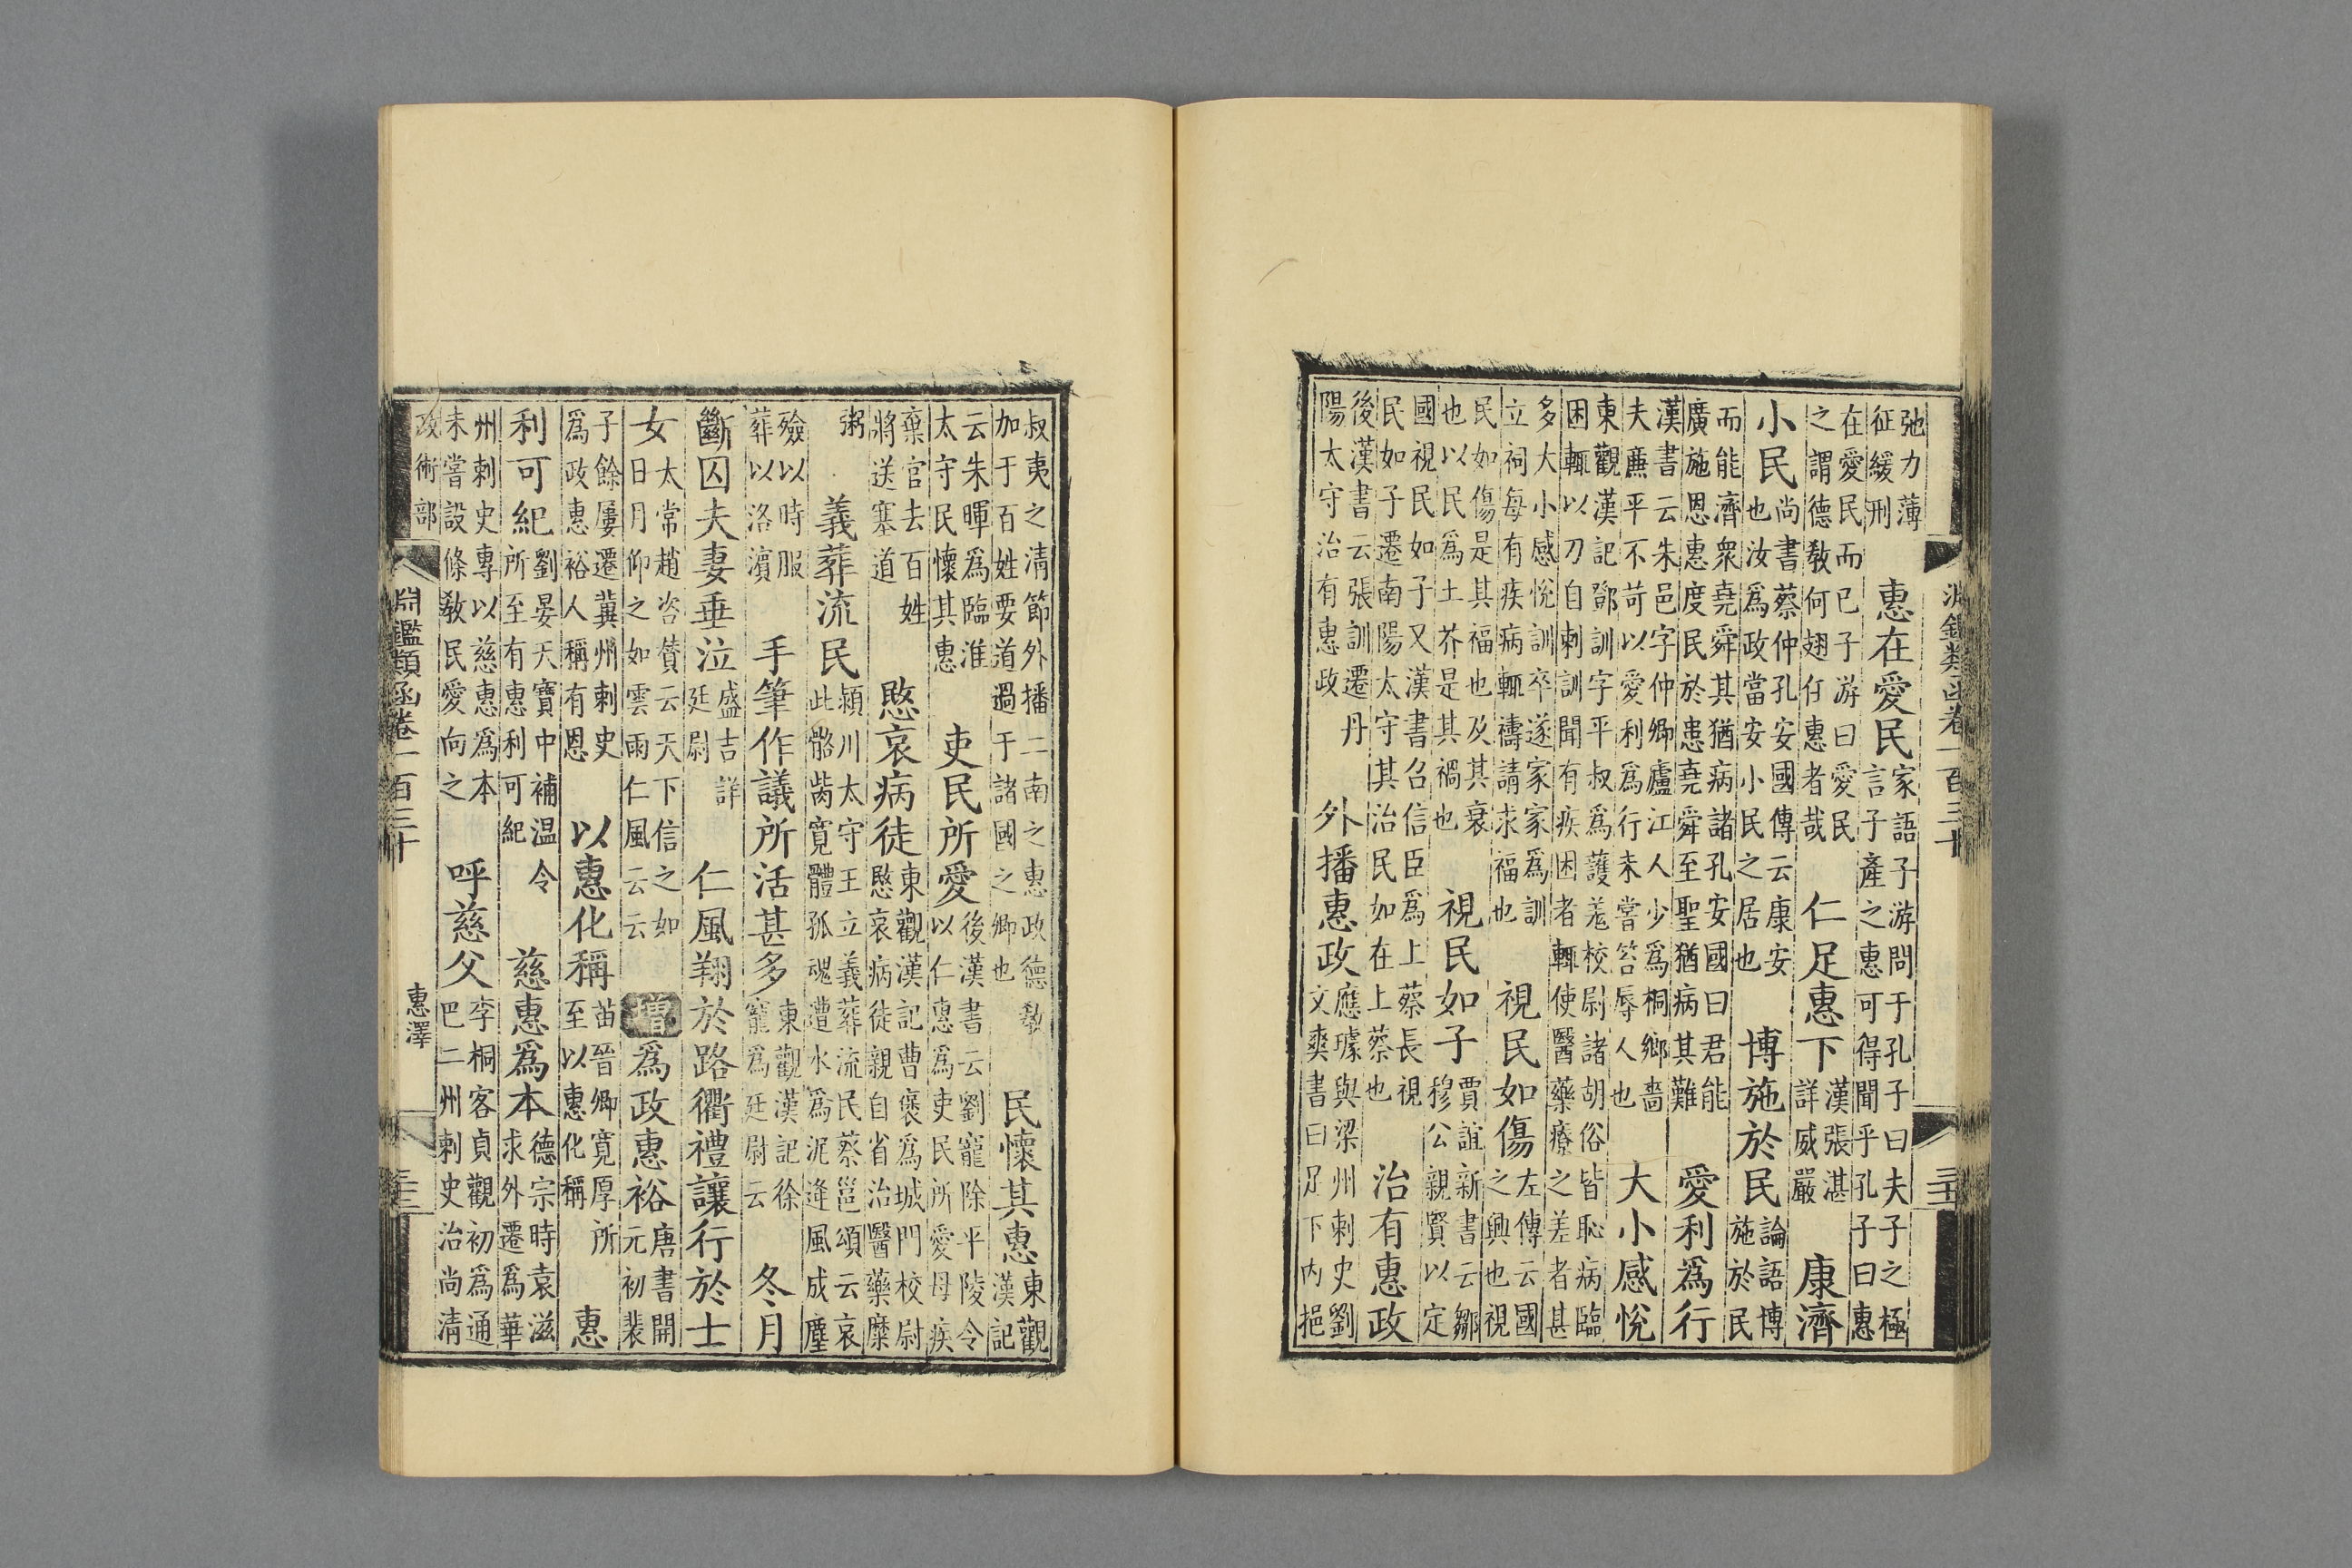 弛力薄征緩刑 惠在愛民 家語子游問于孔子曰夫子之極言子產之惠可得聞乎孔子曰惠
在愛民而已子游曰愛民之謂德敎何翅仔惠者哉 仁足惠下 漢張湛詳威嚴 康濟
小民 尚書蔡仲孔安國傳云康安也汝爲政當安小民之居也 博施於民 論語博施於民
而能濟衆堯舜其猶病諸孔安國曰君能廣施恩惠度民於患堯舜至聖猶病其難 愛利爲行
漢書云朱邑字仲卿廬江人少爲桐鄉嗇夫廉平不苛以愛利爲行未嘗笞辱人也 大小感悅
東觀漢記鄧訓字平叔爲護羌校尉諸胡俗皆恥病臨困輒以刀自刺訓聞有疾困者輒使醫藥療之差者甚
多大小感悅訓卒遂家家爲訓立祠每有疾病輒禱請求福也 視民如傷 左傳云國之興也視
民如傷是其福也及其衰也以民爲土芥是其禍也 視民如子 賈誼新書云鄒穆公親賢以定
國視民如子又漢書召信臣爲上蔡長視民如子遷南陽太守其治民如在上蔡也 治有惠政
後漢書云張訓遷丹陽太守治有惠政 外播惠政 應璩與梁州刺史劉文奭書曰足下内挹
叔夷之清節外播二南之惠政德敎加于百姓要道過于諸國之卿也 民懷其惠 東觀漢記
云朱暉爲臨淮太守民懷其惠 吏民所愛 後漢書云劉寵除平陵令以仁惠爲吏民所愛母疾
棄官去百姓將送塞道 愍哀病徒 東觀漢記曹褒爲城門校尉愍哀病徒親自省治醫藥糜
粥 義葬流民 潁川太守王立義葬流民蔡邕頌云哀此骼胔寬體孤魂遭水爲泥逢風成塵
殮以時服葬以洛濱 手筆作議所活甚多 東觀漢記徐寵爲廷尉云 冬月
斷囚夫妻垂泣 盛吉詳廷尉 仁風翔於路衢禮讓行於士
女 太常趙咨贊云天下信之如日月仰之如雲雨仁風云云 增 爲政惠裕 唐書開元初裴
子餘屢遷冀州刺史爲政惠裕人稱有恩 以惠化稱 苗晉卿寬厚所至以惠化稱 惠
利可紀 劉晏天寶中補温令所至有惠利可紀 慈惠爲本 德宗時袁滋求外遷爲華
州刺史專以慈惠爲本未嘗設條敎民愛向之 呼慈父 李桐客貞觀初爲通巴二州刺史治尚清
政術部 淵鑑類函卷一百三十 惠澤